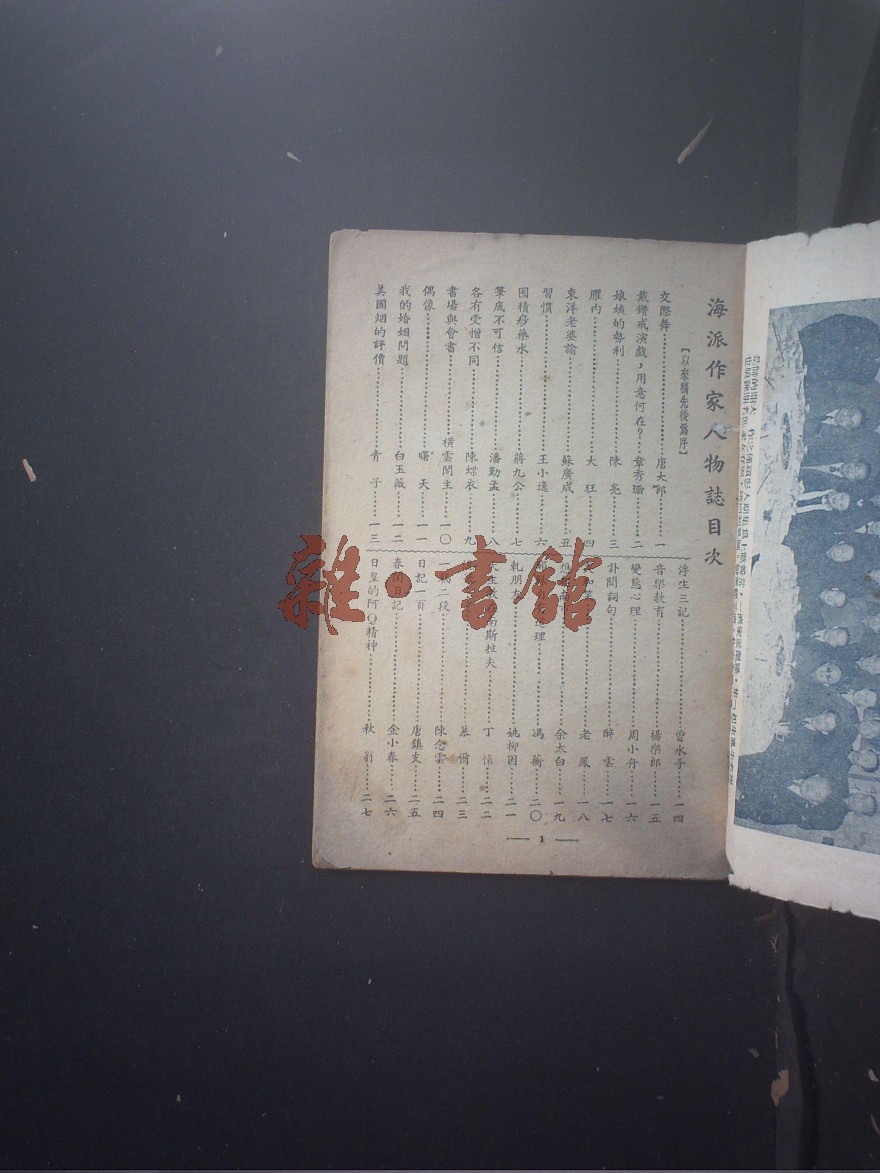 海派作家人物誌目次
【以來稿先後為序】
文際舞……唐大郎……一
戴鑽戒演戲，用意何在？……章秀珊……二
娘姨的勢利……陳 亮……三
腳肉……大 狂……四
東洋老婆論……蘇廣成……五
習慣……王小逸……六
囤積痧藥水……蔣九公……七
筆底不可信……潘勤孟……八
各有愛憎不同……陳蝶衣……九
書場與會書……橫雲閣主……一〇
偶像……曙 天……一一
我的婚姻問題……白玉薇……一二
美國烟的評價……青 子……一三
浮生三記……曾水手……一四
音樂教育……楊樂郎……一五
變態心理……周小舟……一六
訃聞詞句……醉 雲……一七
老 鳳……一八
余太白……一九
道理……馮 蘅……二〇
軋朋友……姚柳因……二一
南斯拉夫……丁 悚……二二
慕 爾……二三
二段……陳念雲……二四
日記一頁……唐鎮支……二五
春閨日記……金小春……二六
日皇的阿Q精神……秋 翁……二七
— 1 —
雜·書館